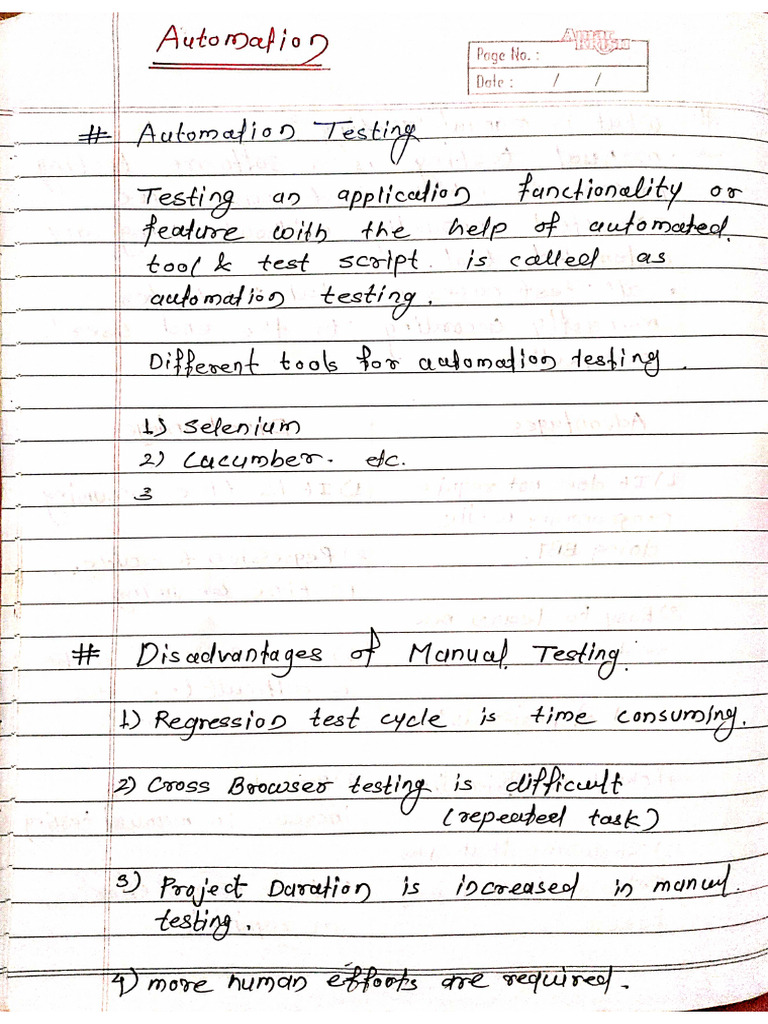 Automation
Page No. :
Date : / /
# Automation Testing
Testing an application functionality or
feature with the help of automated.
tool & test script. is called as
automation testing.
Different tools for automation testing.
1) Selenium
2) Cacumber. etc.
3
# Disadvantages of Manual Testing.
1) Regression test cycle is time consuming.
2) Cross Browser testing is difficult
(repeated task)
3) Project Daration is increased in manual.
testing.
4) more human effoots are required.